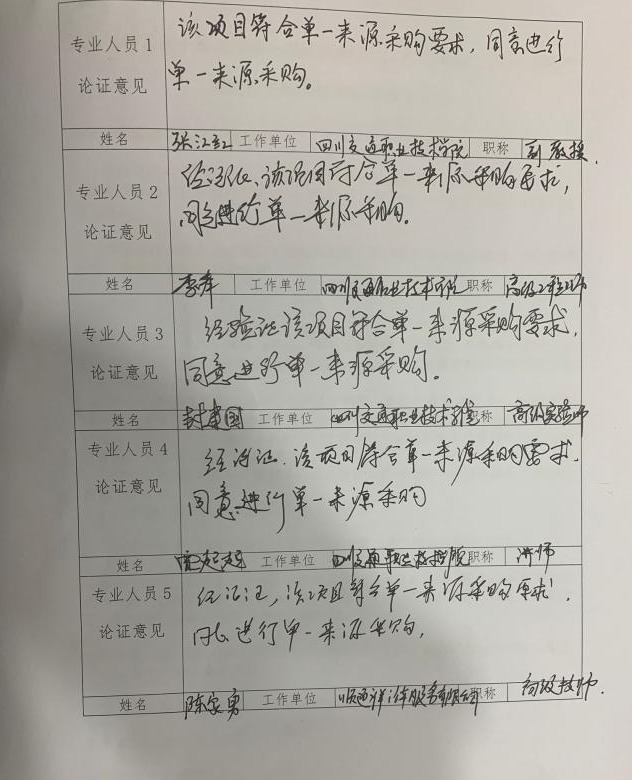 专业人员1
论证意见
该项目符合单一来源采购要求，同意进行
单一来源采购。
姓名 张江红 工作单位 四川交通职业技术学院 职称 副教授
专业人员2
论证意见
经论证、该项目符合单一来源采购要求，
同意进行单一来源采购。
姓名 李库 工作单位 四川交通职业技术学院 职称 高级工程师
专业人员3
论证意见
经验证该项目符合单一来源采购要求，
同意进行单一来源采购。
姓名 封建国 工作单位 四川交通职业技术学院 职称 高级实验师
专业人员4
论证意见
经论证，该项目符合单一来源采购要求，
同意进行单一来源采购
姓名 工作单位 四川交通职业技术学院 职称 讲师
专业人员5
论证意见
经论证，该项目符合单一来源采购要求，
同意进行单一来源采购，
姓名 陈家勇 工作单位 职称 高级技师